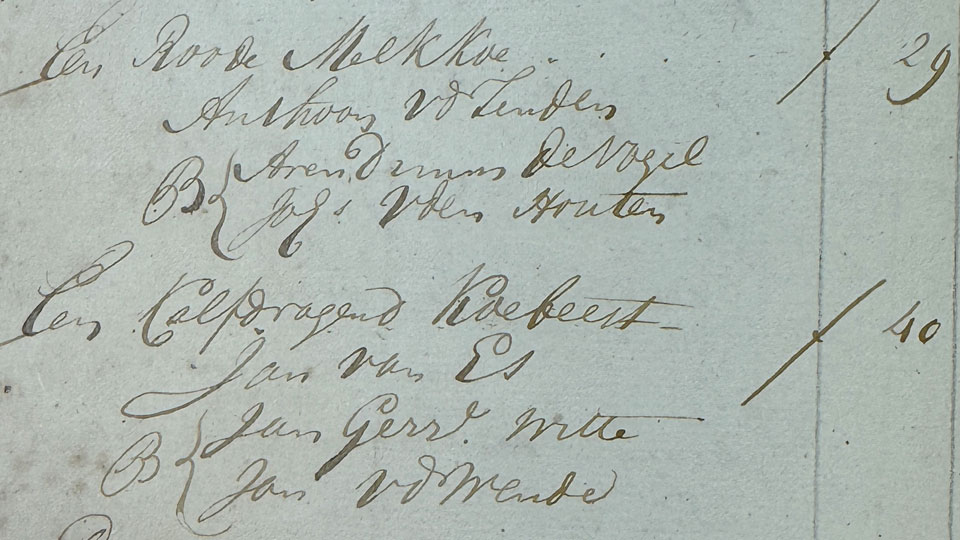 Een Roode Melkkoe . . . ƒ 29
Anthoon vd Linden
B { Arend de Vogel
Johs Vden Houten
Een Kalfdragend Koebeest – ƒ 40
Jan van Es
B { Jan Gerrd. Witte
Jan vd Wende